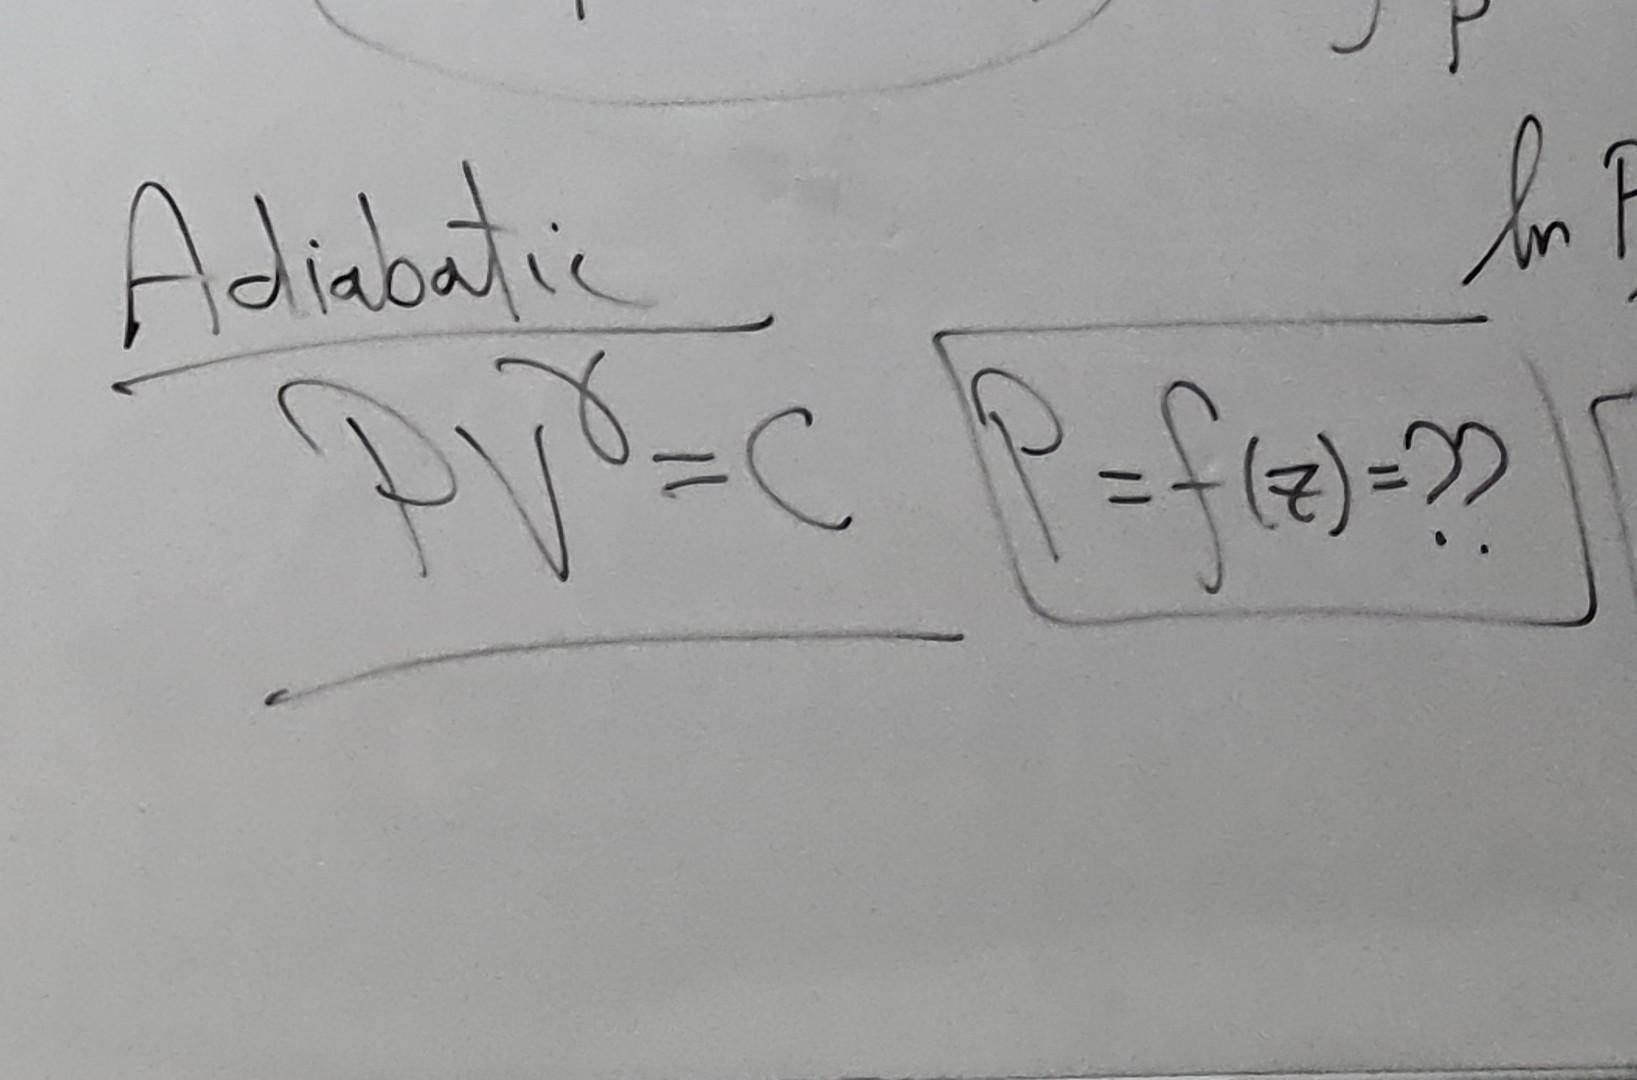 P
ln P
Adiabatic
PV^γ = C
P = f(z) = ??